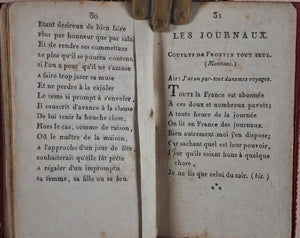 30
Etant desireux de bien faire
Plus par honneur que par salaire
Et de rendre ses commettans
Le plus qu'il se pourra contens.
si l'on a peur qu'il ne s'amuse
A faire trop jaser sa muse
Et ne perdre à la cajoler
Le tems si prompt à s'envoler,
Il souscrit d'avance à la clause
De lui tenir la bouche close.
Hors le cas, comme de raison,
Où le maître de la maison
A l'approche d'un jour de fête
souhaiterait qu'elle fût prête
A régaler d'un impromptu
sa femme, sa fille ou sa bru.
31
LES JOURNAUX.
COUPLETS DE FRONTIN TOUT SEUL.
(Montans.)
Air: J'ai vu par-tout dans mes voyages.
TOUTE la France est abusnée
A ces doux et nombreux pavots;
A toute heure de la journée
On lit en France des journaux.
Bien autrement moi j'en dispose;
Car sachant quel est leur pouvoir,
Pour qu'ils soient bons à quelque
chose,
Je ne lis que celui du soir. (bis.)